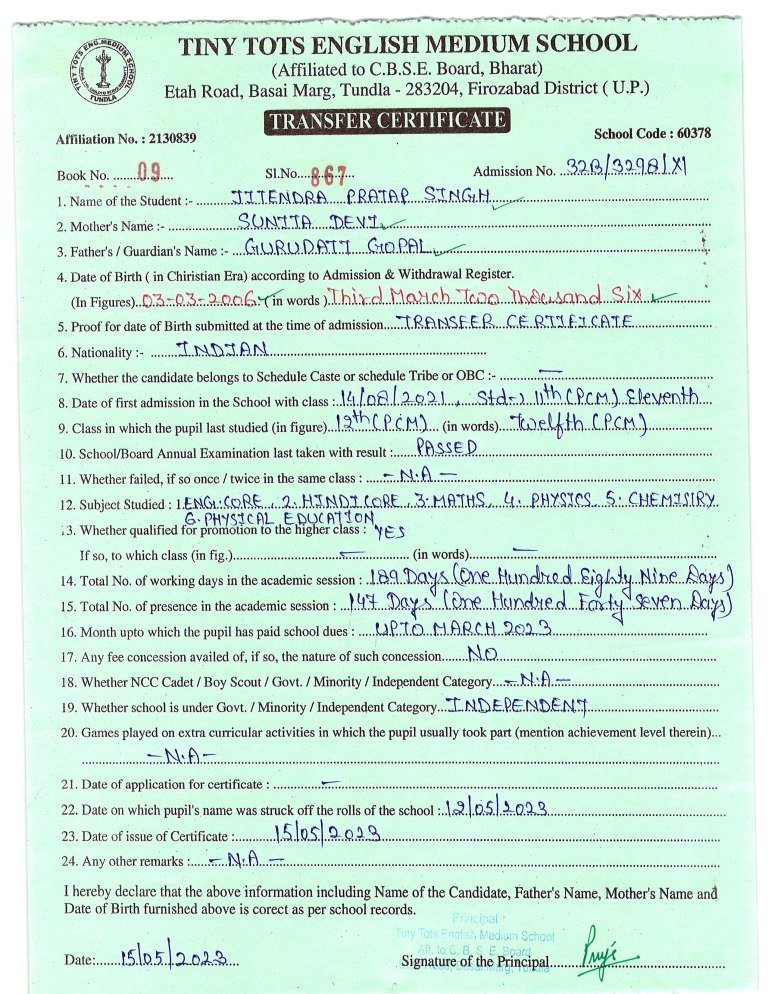 TINY TOTS ENG. MEDIUM SCHOOL
TUNDLA
TINY TOTS ENGLISH MEDIUM SCHOOL
(Affiliated to C.B.S.E. Board, Bharat)
Etah Road, Basai Marg, Tundla - 283204, Firozabad District ( U.P.)
TRANSFER CERTIFICATE
Affiliation No. : 2130839 School Code : 60378
Book No. ...09... Sl.No...867... Admission No. ..32B/3298/XI
1. Name of the Student :- JITENDRA PRATAP SINGH
2. Mother's Name :- SUNITA DEVI
3. Father's / Guardian's Name :- GURUDATT GOPAL
4. Date of Birth ( in Chiristian Era) according to Admission & Withdrawal Register.
(In Figures)..03-03-2006 (in words ) Third March Two Thousand Six
5. Proof for date of Birth submitted at the time of admission....TRANSFER CERTIFICATE
6. Nationality :- INDIAN
7. Whether the candidate belongs to Schedule Caste or schedule Tribe or OBC :- —
8. Date of first admission in the School with class : 14/08/2021, Std-) 11th (PCM) Eleventh
9. Class in which the pupil last studied (in figure)..12th (PCM).. (in words)..Twelfth (PCM)
10. School/Board Annual Examination last taken with result : PASSED
11. Whether failed, if so once / twice in the same class : - N.A -
12. Subject Studied : 1.ENG.CORE, 2. HINDI CORE, 3.MATHS, 4. PHYSICS, 5. CHEMISTRY
6. PHYSICAL EDUCATION
.3. Whether qualified for promotion to the higher class : YES
If so, to which class (in fig.)...—... (in words)...—...
14. Total No. of working days in the academic session : 189 Days (One Hundred Eighty Nine Days)
15. Total No. of presence in the academic session : 147 Days (One Hundred Forty Seven Days)
16. Month upto which the pupil has paid school dues : UPTO MARCH 2023
17. Any fee concession availed of, if so, the nature of such concession....NO
18. Whether NCC Cadet / Boy Scout / Govt. / Minority / Independent Category...- N.A -
19. Whether school is under Govt. / Minority / Independent Category..INDEPENDENT
20. Games played on extra curricular activities in which the pupil usually took part (mention achievement level therein)...
- N.A -
21. Date of application for certificate : —
22. Date on which pupil's name was struck off the rolls of the school : 12/05/2023
23. Date of issue of Certificate : 15/05/2023
24. Any other remarks : - N.A -
I hereby declare that the above information including Name of the Candidate, Father's Name, Mother's Name and
Date of Birth furnished above is corect as per school records.
Principal
Tiny Tots English Medium School
Aff. to C. B. S. E. Board
Basai Marg, Tundla
Date:....15/05/2023 Signature of the Principal